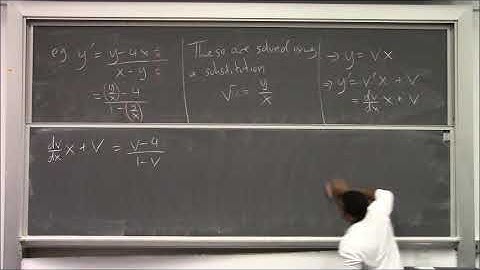 eg. y' = (y-4x ÷x)/(x-y ÷x)
= ((y/x)-4)/(1-(y/x))
These are solved using
a substitution
V := y/x
⇒ y = Vx
⇒ y' = V'x + V
= dv/dx x + V
dv/dx x + V = (V-4)/(1-V)